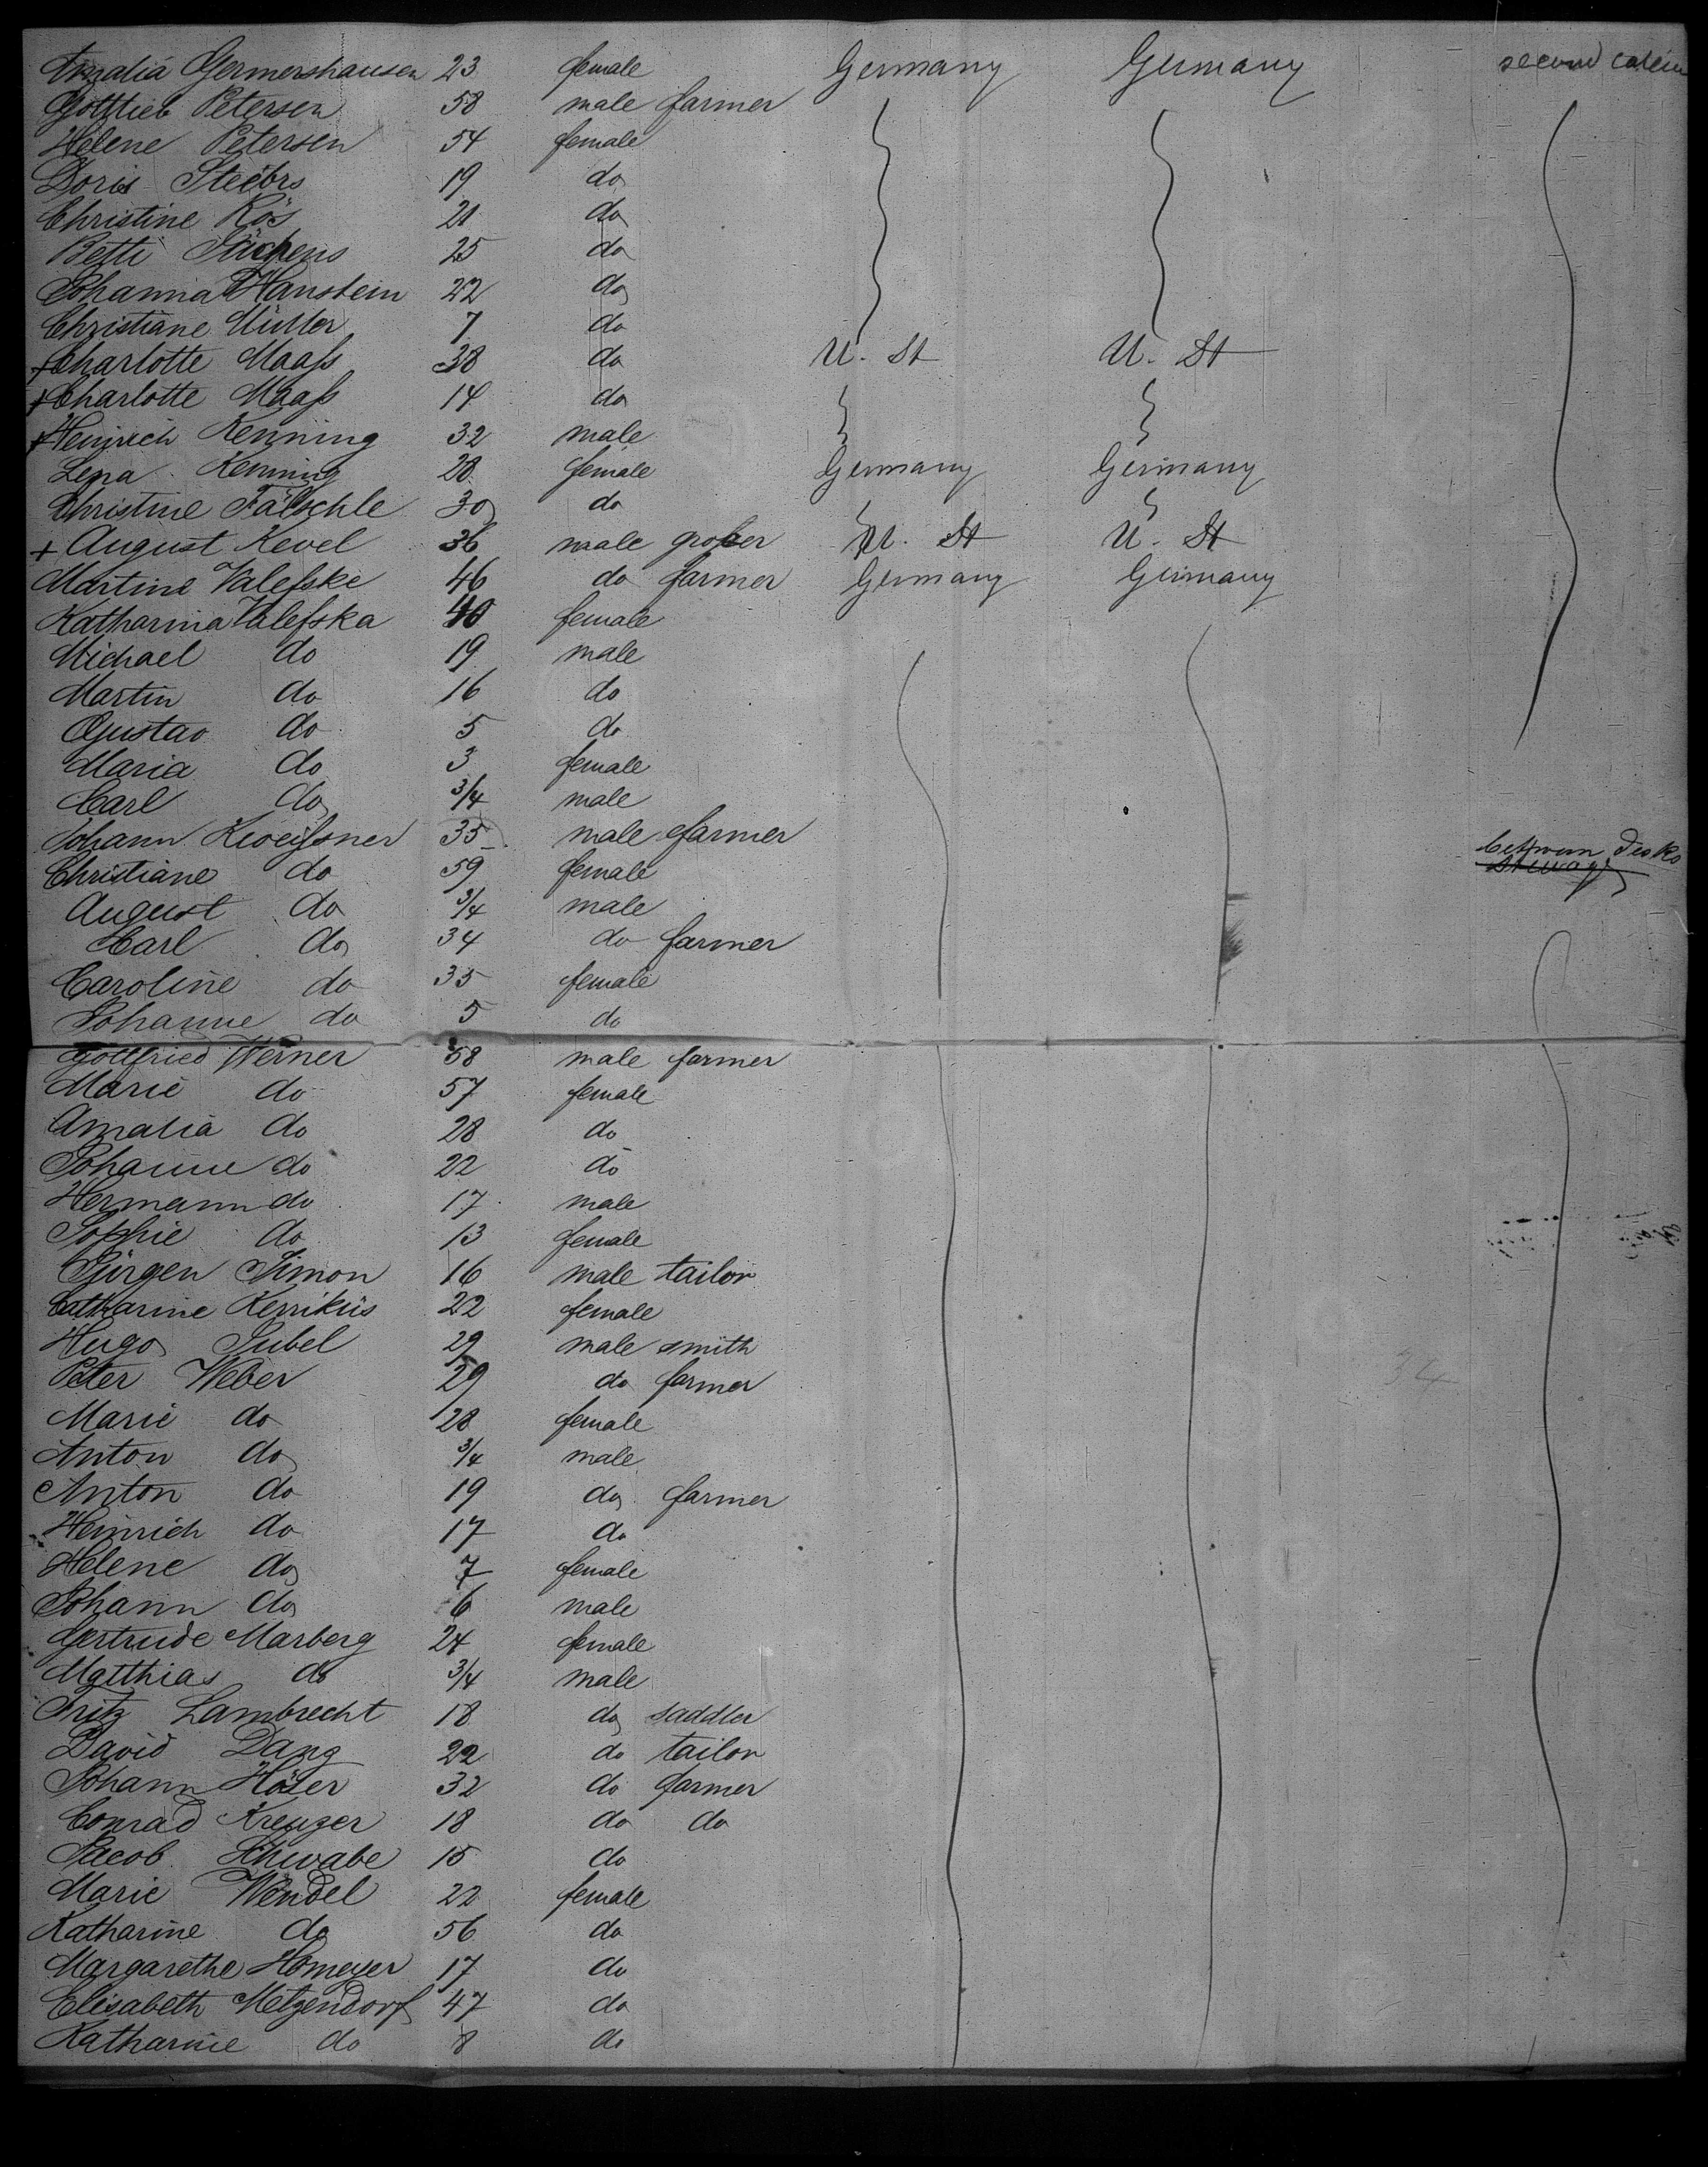 Amalia Germershausen 23 female Germany Germany second
Gottlieb Petersen 58 male farmer
Helene Petersen 54 female
Doris 19 do
Christine Rös 21 do
Betti 25 do
Johanna Hanstein 22 do
Christiane Müller 7 do
+ Charlotte Maaß 38 do U. St U. St
+ Charlotte Maaß 14 do
+ Heinrich Kenning 32 male
Lena Kenning 28 female Germany Germany
Christine Fälschle 30 do
+ August Kevel 36 male U. St U. St
Martine Valeßke 46 do farmer Germany Germany
Katharina Valeßka 40 female
Michael do 19 male
Martin do 16 do
Gustav do 5 do
Maria do 3 female
Carl do 3/4 male
Johann 35 male farmer
Christiane do 59 female
August do 3/4 male
Carl do 34 do farmer
Caroline do 35 female
Johanne do 5 do
Gottfried Werner 58 male farmer
Marie do 57 female
Amalia do 28 do
Johanne do 22 do
Hermann do 17 male
Sophie do 13 female
Jürgen Simon 16 male tailor
Catharine 22 female
Hugo Jubel 29 male smith
Peter Weber 29 do farmer
Marie do 28 female
Anton do 3/4 male
Anton do 19 do farmer
Heinrich do 17 do
Helene do 7 female
Johann do 6 male
Gertrude Marberg 24 female
Matthias do 3/4 male
Fritz Lambrecht 18 do saddler
David Dang 22 do tailor
Johann 32 do farmer
Conrad Kreuzer 18 do do
Jacob Schwabe 15 do
Marie Wendel 22 female
Katharine do 56 do
Margarethe Homeyer 17 do
Elisabeth Metzendorf 47 do
Katharine do 8 do